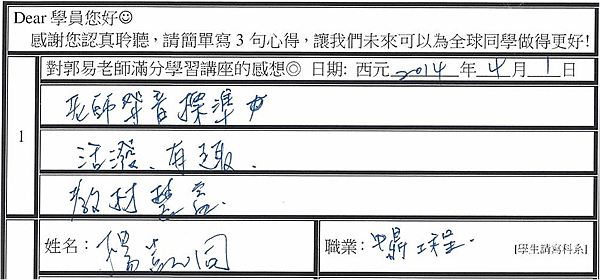 Dear 學員您好☺
感謝您認真聆聽，請簡單寫 3 句心得，讓我們未來可以為全球同學做得更好!
對郭易老師滿分學習講座的感想◎ 日期: 西元 2014 年 4 月 1 日
1
老師聲音標準
活潑、有趣.
教材豐富.
姓名： 楊 同
職業： 工程. [學生請寫科系]